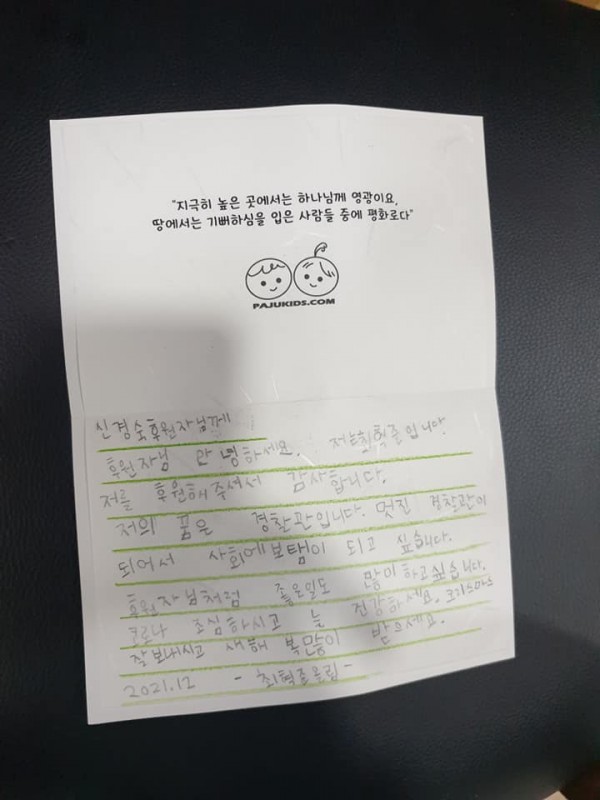 "지극히 높은 곳에서는 하나님께 영광이요,
땅에서는 기뻐하심을 입은 사람들 중에 평화로다"
PAJUKIDS.COM
신경숙후원자님께
후원자님 안녕하세요. 저는최혁준입니다.
저를 후원해주셔서 감사합니다.
저의 꿈은 경찰관입니다. 멋진 경찰관이
되어서 사회에보탬이 되고 싶습니다.
후원자님처럼 좋은일도 많이하고싶습니다.
코로나 조심하시고 늘 건강하세요. 크리스마스
잘보내시고 새해 복많이 받으세요.
2021.12 - 최혁준올림 -